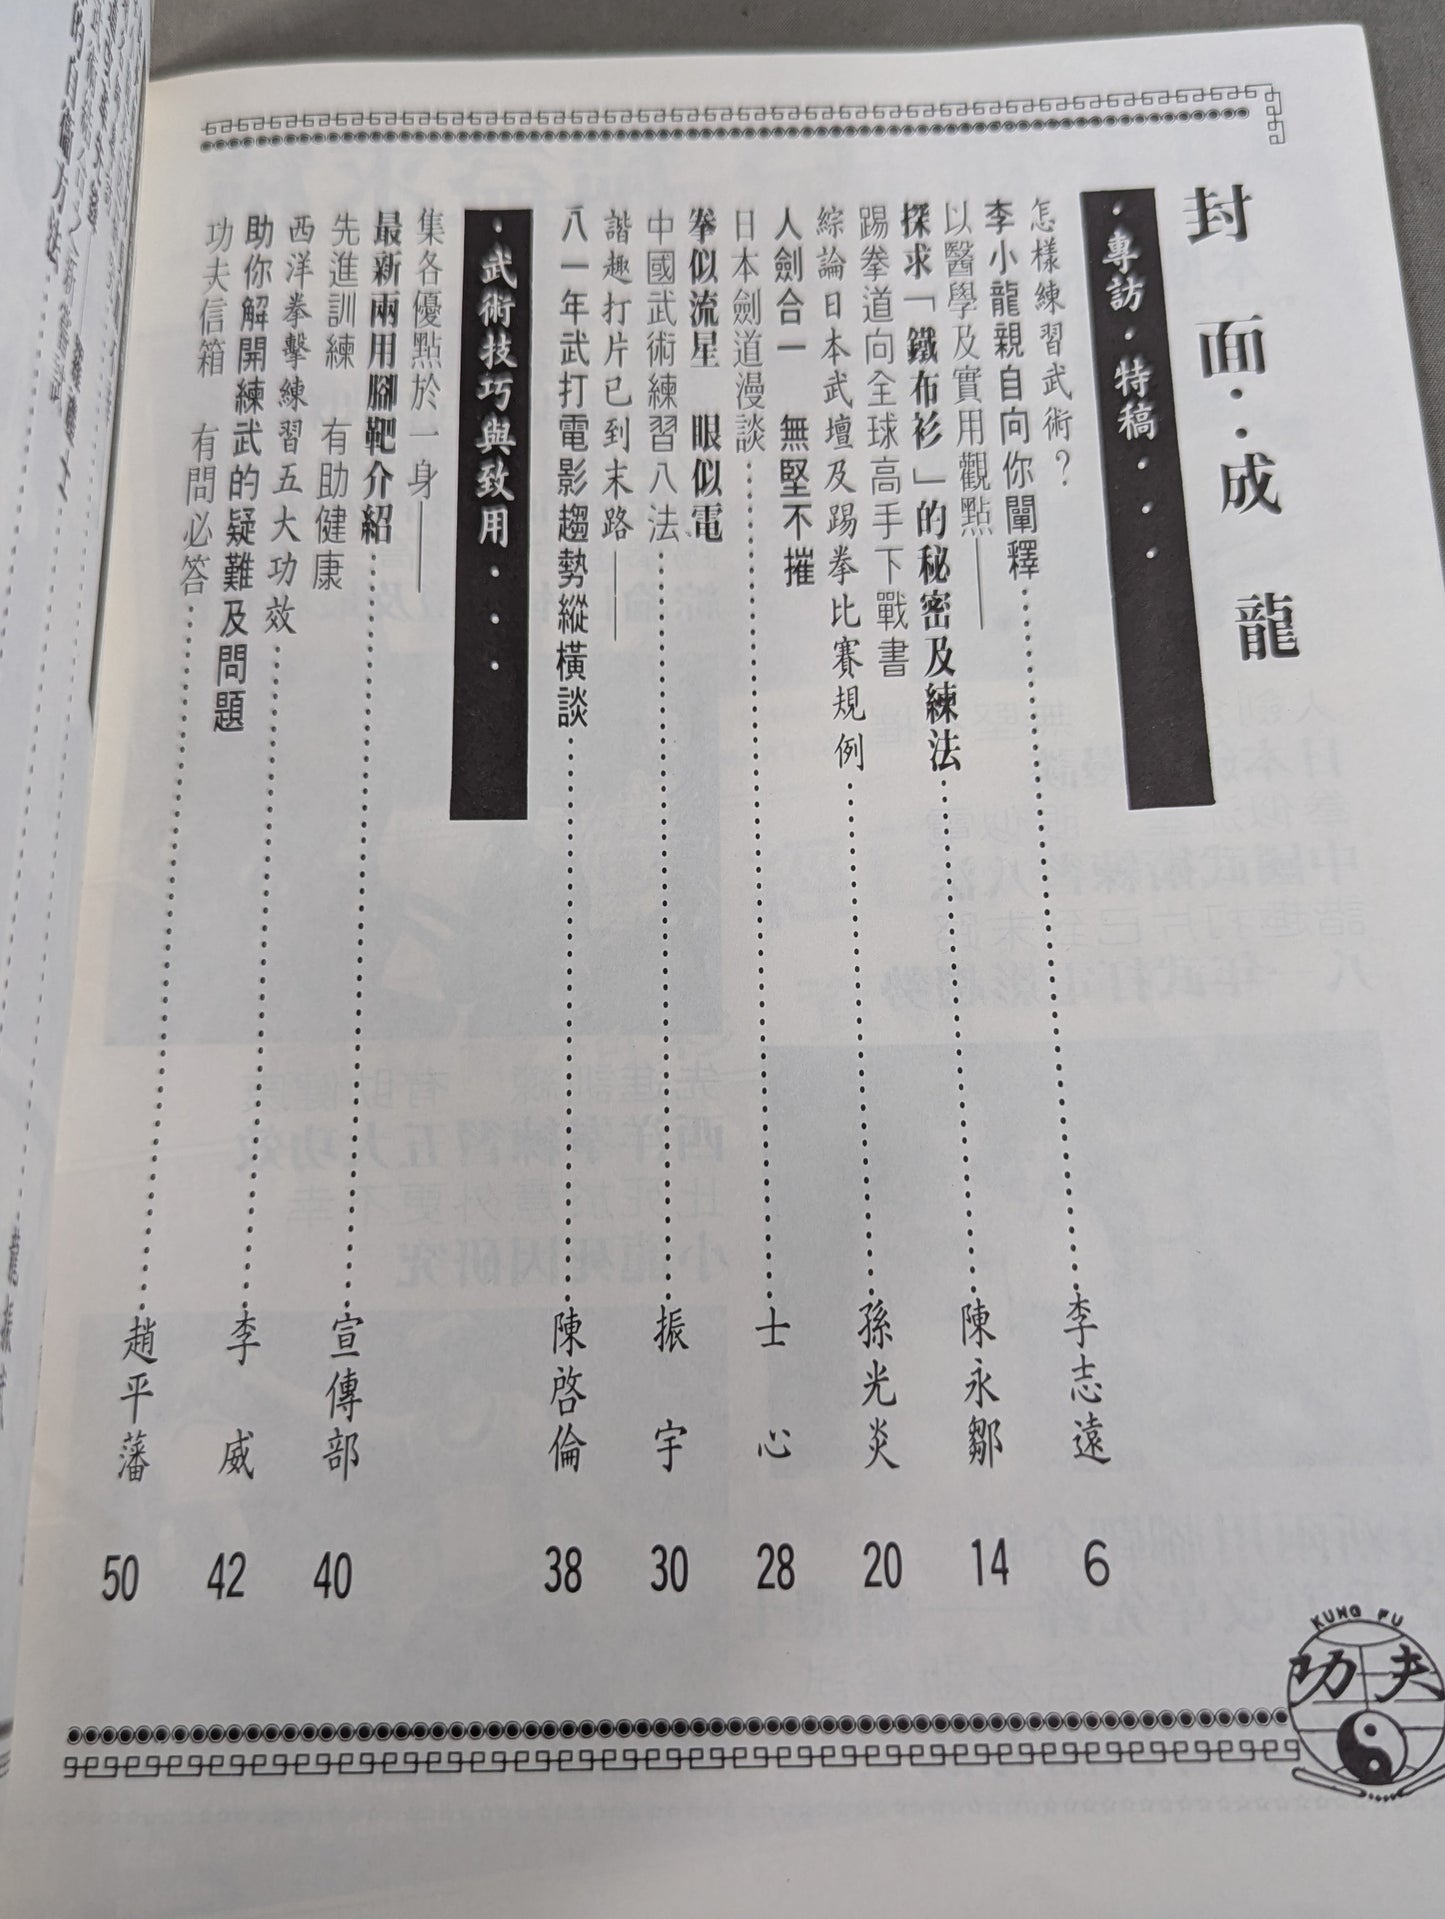 封面：成龍
·專訪·特稿····
怎樣練習武術？
李小龍親自向你闡釋……李志遠 6
以醫學及實用觀點——
探求「鐵布衫」的秘密及練法……陳永鄒 14
踢拳道向全球高手下戰書
綜論日本武壇及踢拳比賽規例……孫光炎 20
人劍合一 無堅不摧
日本劍道漫談……士心 28
拳似流星 眼似電
中國武術練習八法……振宇 30
諧趣打片已到末路——
八一年武打電影趨勢縱橫談……陳啓倫 38
·武術技巧與致用····
集各優點於一身——
最新兩用腳靶介紹……宣傳部 40
先進訓練 有助健康
西洋拳擊練習五大功效……李威 42
助你解開練武的疑難及問題
功夫信箱 有問必答……趙平藩 50
KUNG FU
功夫